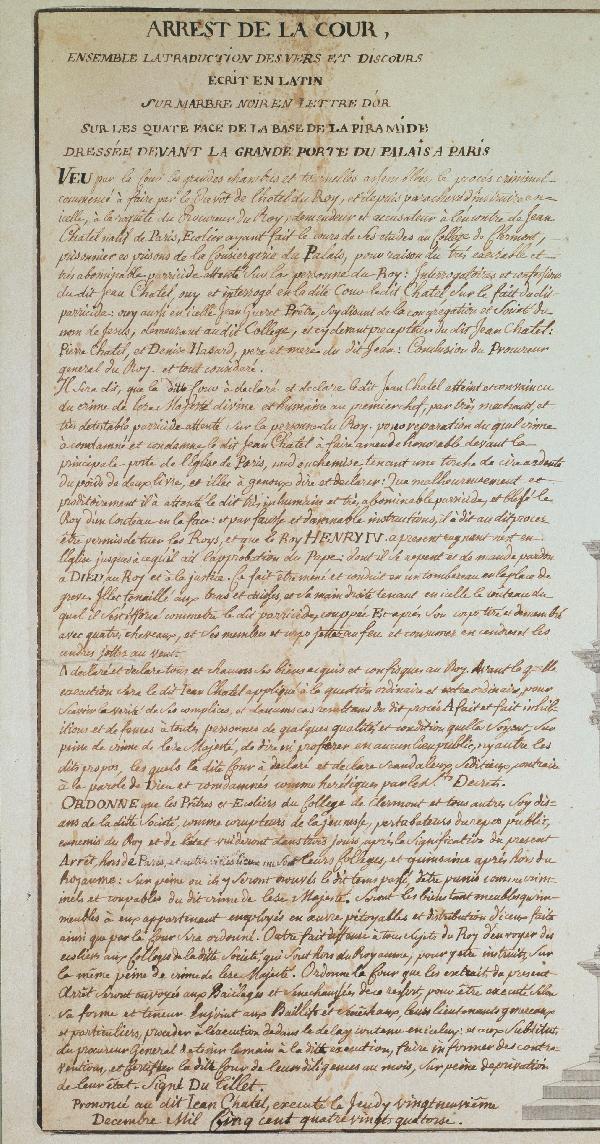 ARREST DE LA COUR,
ENSEMBLE LA TRADUCTION DES VERS ET DISCOURS
ECRIT EN LATIN
SUR MARBRE NOIR EN LETTRE D'OR
SUR LES QUATE FACE DE LA BASE DE LA PIRAMIDE
DRESSÉE DEVANT LA GRANDE PORTE DU PALAIS A PARIS
VEU par la Cour les grandes chambres et tournelles assemblées, le procés criminel
commencé à faire par le Prevôt de l'hotel du Roy, et depuis parachevé d'instruire en
icelle, à la requête du Procureur du Roy, demandeur et accusateur à l'encontre de Jean
Chatel natif de Paris, Ecolier ayant fait le cours de ses etudes au College de Clermont,
prisonnier es prisons de la Consiergerie du Palais, pour raison du trés execrable et
trés abominable parricide attenté sur la personne du Roy: Interrogatoires et confessions
du dit Jean Chatel, ouy et interrogé en la dite Cour le dit Chatel sur le fait du dit
parricide: ouy aussi en icelle Jean Gueret Prêtre, soy disant de la congregation et Societé du
nom de Jesus, demeurant au dit College, et cy devant precepteur du dit Jean Chatel:
Pierre Chatel, et Denise Hasard, pere et mere du dit Jean: Conclusion du Procureur
general du Roy. et tout consideré.
Il sera dit, que la dite Cour à declaré et declare le dit Jean Chatel atteint et convaincu
du crime de leze Majesté divine et humaine au premier chef, par trés mechant et
trés detestable parricide attenté sur la personne du Roy. pour reparation du quel crime
à condamné et condamne le dit Jean Chatel à faire amende honorable devant la
principale porte de l'Eglise de Paris, nud en chemise tenant une torche de cire ardente
du poids de deux livre, et illec à genoux dire et declarer: Que malheureusement et
proditoirement il à attenté le dit trés inhumains et trés abominable parricide, et blessé le
Roy d'un Couteau en la face: et par fausse et damnable instructions, il à dit au dit procez
être permis de tuer les Roys, et que le Roy HENRY IV. a present regnant n'est en
l'Eglise jusques à ce qu'il ait l'approbation du Pape: dont il se repent et demande pardon
à DIEU au Roy et à la justice. Ce fait être mené et conduit en un tombereau en la place de
greve. Illec tenaillé aux bras et cuisses, et sa main droite tenant en icelle le couteau du
quel il s'est efforcé commetre le dit parricide, couppée Et aprés son corps tiré et demembré
avec quatre chevaux, et ses membres et corps jettés au feu et consumer en cendres et les
cendres jettes au vent.
A declaré et declare tous et chacuns ses biens acquis et confisqués au Roy. Avant la q.elle
execution sera le dit Jean Chatel appliqué à la question ordinaire et extraordinaire, pour
scavoir la verité de ses complices, et d'aucuns cas resultans du dit procés A fait et fait inhib-
itions et defences à toutes personnes de quelques qualités et condition quelle soyent, sur
peine de crime de leze Majesté, de dire ni proferer en aucun lieu public, ny autre les
dits propos, les quels la dite Cour à declaré et declare scandaleux, seditieux, contraire
à la parole de Dieu et condamnés comme heretiques par les S.ts Decrets.
ORDONNE que les Prêtres et Ecoliers du College de Clermont et tous autres soy dis-
ans de la ditte Societé, comme corupteurs de la Jeunesse, perturbateurs du repos public,
ennemis du Roy et de l'etat vuideront dans trois jours aprés la signification du present
Arrêt hors de Paris, et autres villes et lieux ou sont leurs Colleges, et quinsaine aprés hors du
Royaume: sur peine ou ils y seront trouvés le dit tems passé, d'être punis comme crim-
inels et coupables du dit crime de leze Majesté. Seront les biens tant meubles qu'im-
meubles à eux appartenant employés en œuvre pitoyables et distribution d'iceux faite
ainsi que par la Cour sera ordonné. Outre fait deffense à tous Sujets du Roy d'envoyer des
ecoliers aux Colleges de la ditte Societé, qui sont hors du Royaume, pour y etre instruis, sur
la même peine de crime de leze Majesté. Ordonne la Cour que les extrait de present
Arrêt seront envoyés aux Bailliages et Senechaussées de ce resort, pour être executé selon
sa forme et teneur. Enjoint aux Baillifs et Senechaux, leurs lieutenants generaux
et particuliers, proceder à l'execution dedans le delay contenu en icelux et aux Substituts
du procureur General à tenir la main à la dite execution, faire informer des contra-
ventions, et certifier la dite Cour de leur diligences au mois, sur peine de privation
de leur état. Signé Du Tillet.
Prononcé au dit Jean Chatel, executé le Jeudy vingt neuviême
Decembre Mil Cinq cent quatre vingts quatorse.